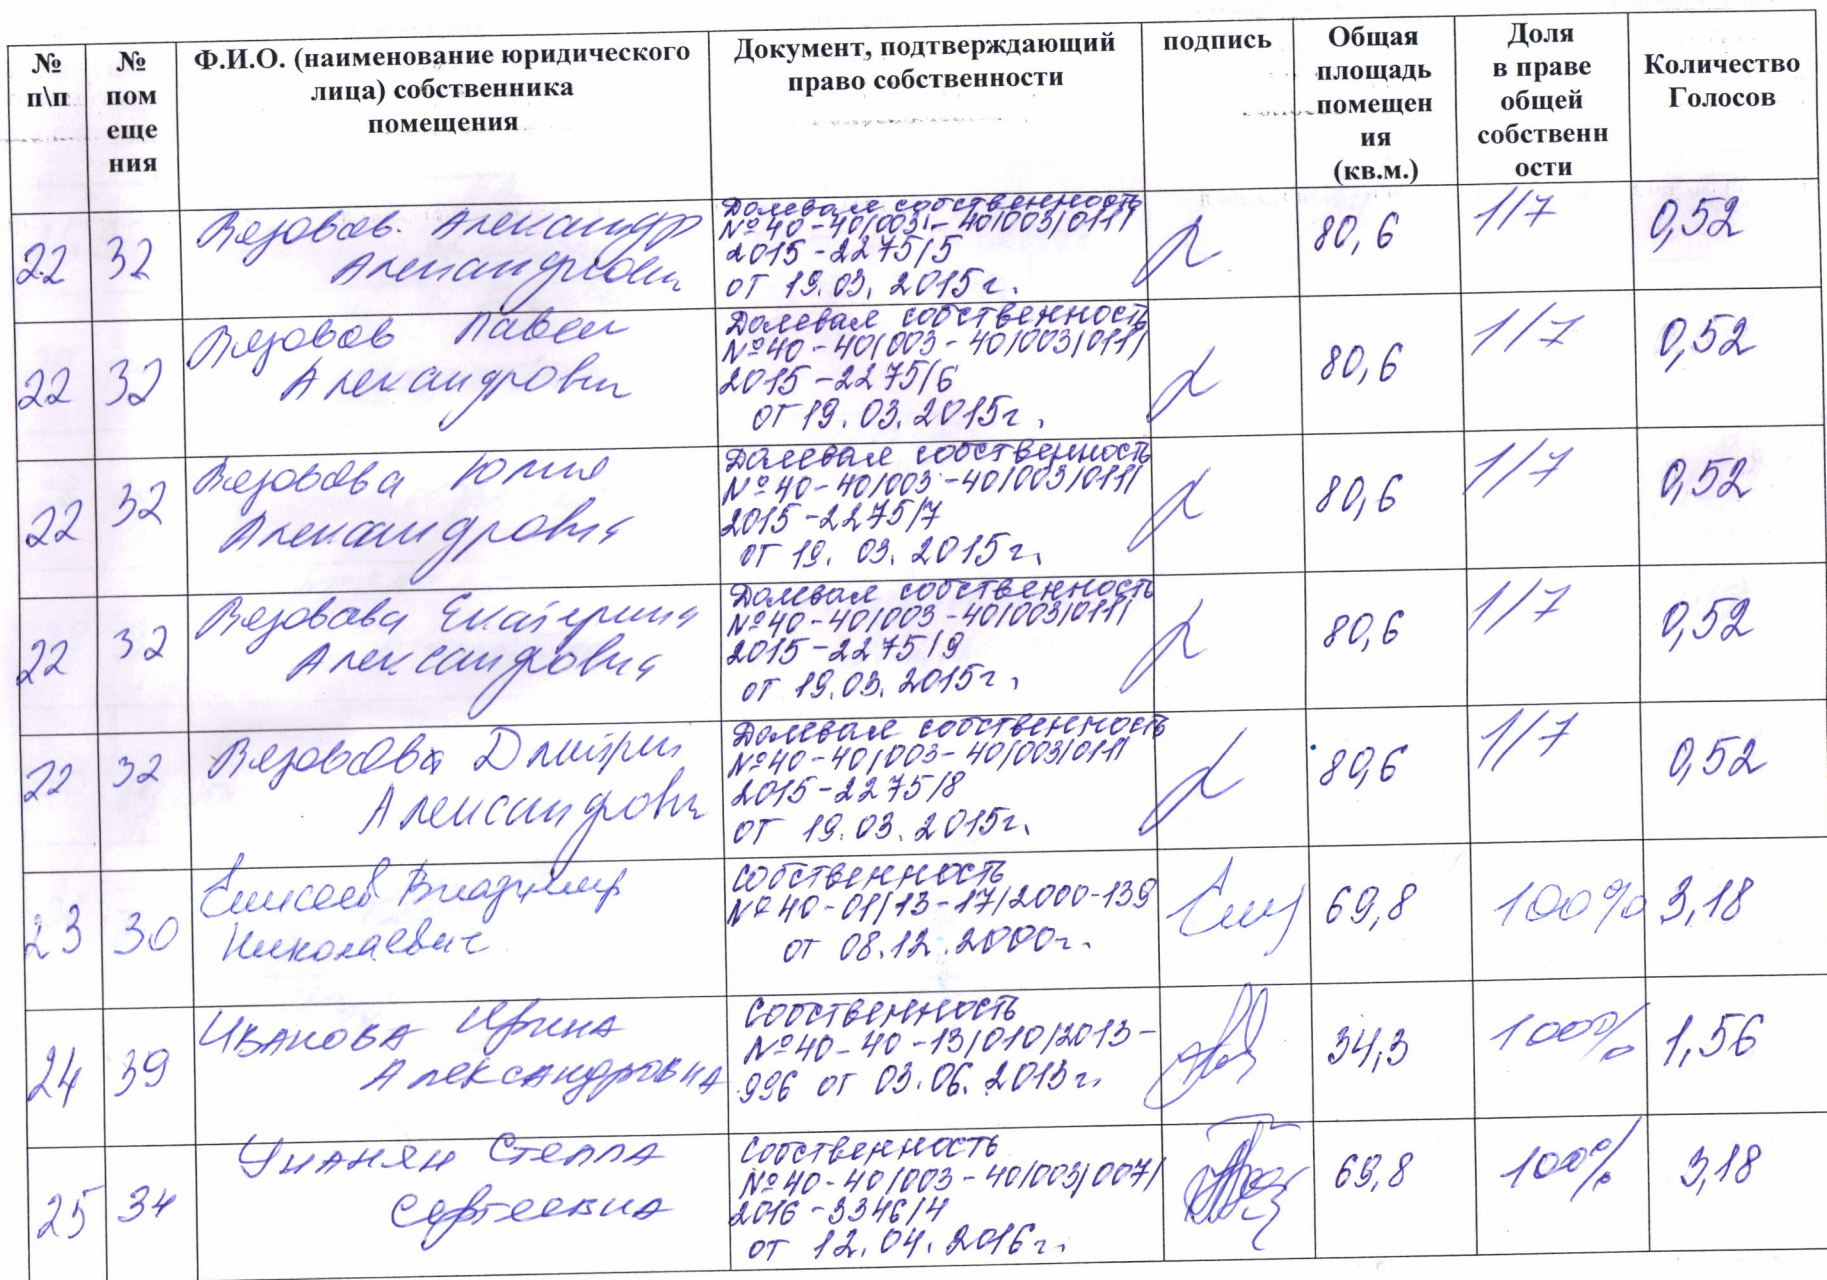 № п\п
№ пом еще ния
Ф.И.О. (наименование юридического
лица) собственника
помещения
Документ, подтверждающий
право собственности
подпись
Общая
площадь
помещен
ия
(кв.м.)
Доля
в праве
общей
собственн
ости
Количество
Голосов
22 32 Вязовов Александр
Александрович
Долевая собственность
№40-40/003-40/003/011/
2015-2275/5
от 19.03.2015г.
80,6 1/7 0,52
22 32 Вязовов Павел
Александрович
Долевая собственность
№40-40/003-40/003/011/
2015-2275/6
от 19.03.2015г.
80,6 1/7 0,52
22 32 Вязовова Юлия
Александровна
Долевая собственность
№40-40/003-40/003/011/
2015-2275/7
от 19.03.2015г.
80,6 1/7 0,52
22 32 Вязовова Екатерина
Александровна
Долевая собственность
№40-40/003-40/003/011/
2015-2275/9
от 19.03.2015г.
80,6 1/7 0,52
22 32 Дмитрий
Александрович
Долевая собственность
№40-40/003-40/003/011/
2015-2275/8
от 19.03.2015г.
80,6 1/7 0,52
23 30 Елисеев Владимир
Николаевич
Собственность
№40-01/13-17/2000-139
от 08.12.2000г.
69,8 100% 3,18
24 39 Иванова Ирина
Александровна
Собственность
№40-40-13/010/2013-
996 от 03.06.2013г.
34,3 100% 1,56
25 34 Стелла
Собственность
№40-40/003-40/003/007/
2016-3346/4
от 12.04.2016г.
69,8 100% 3,18